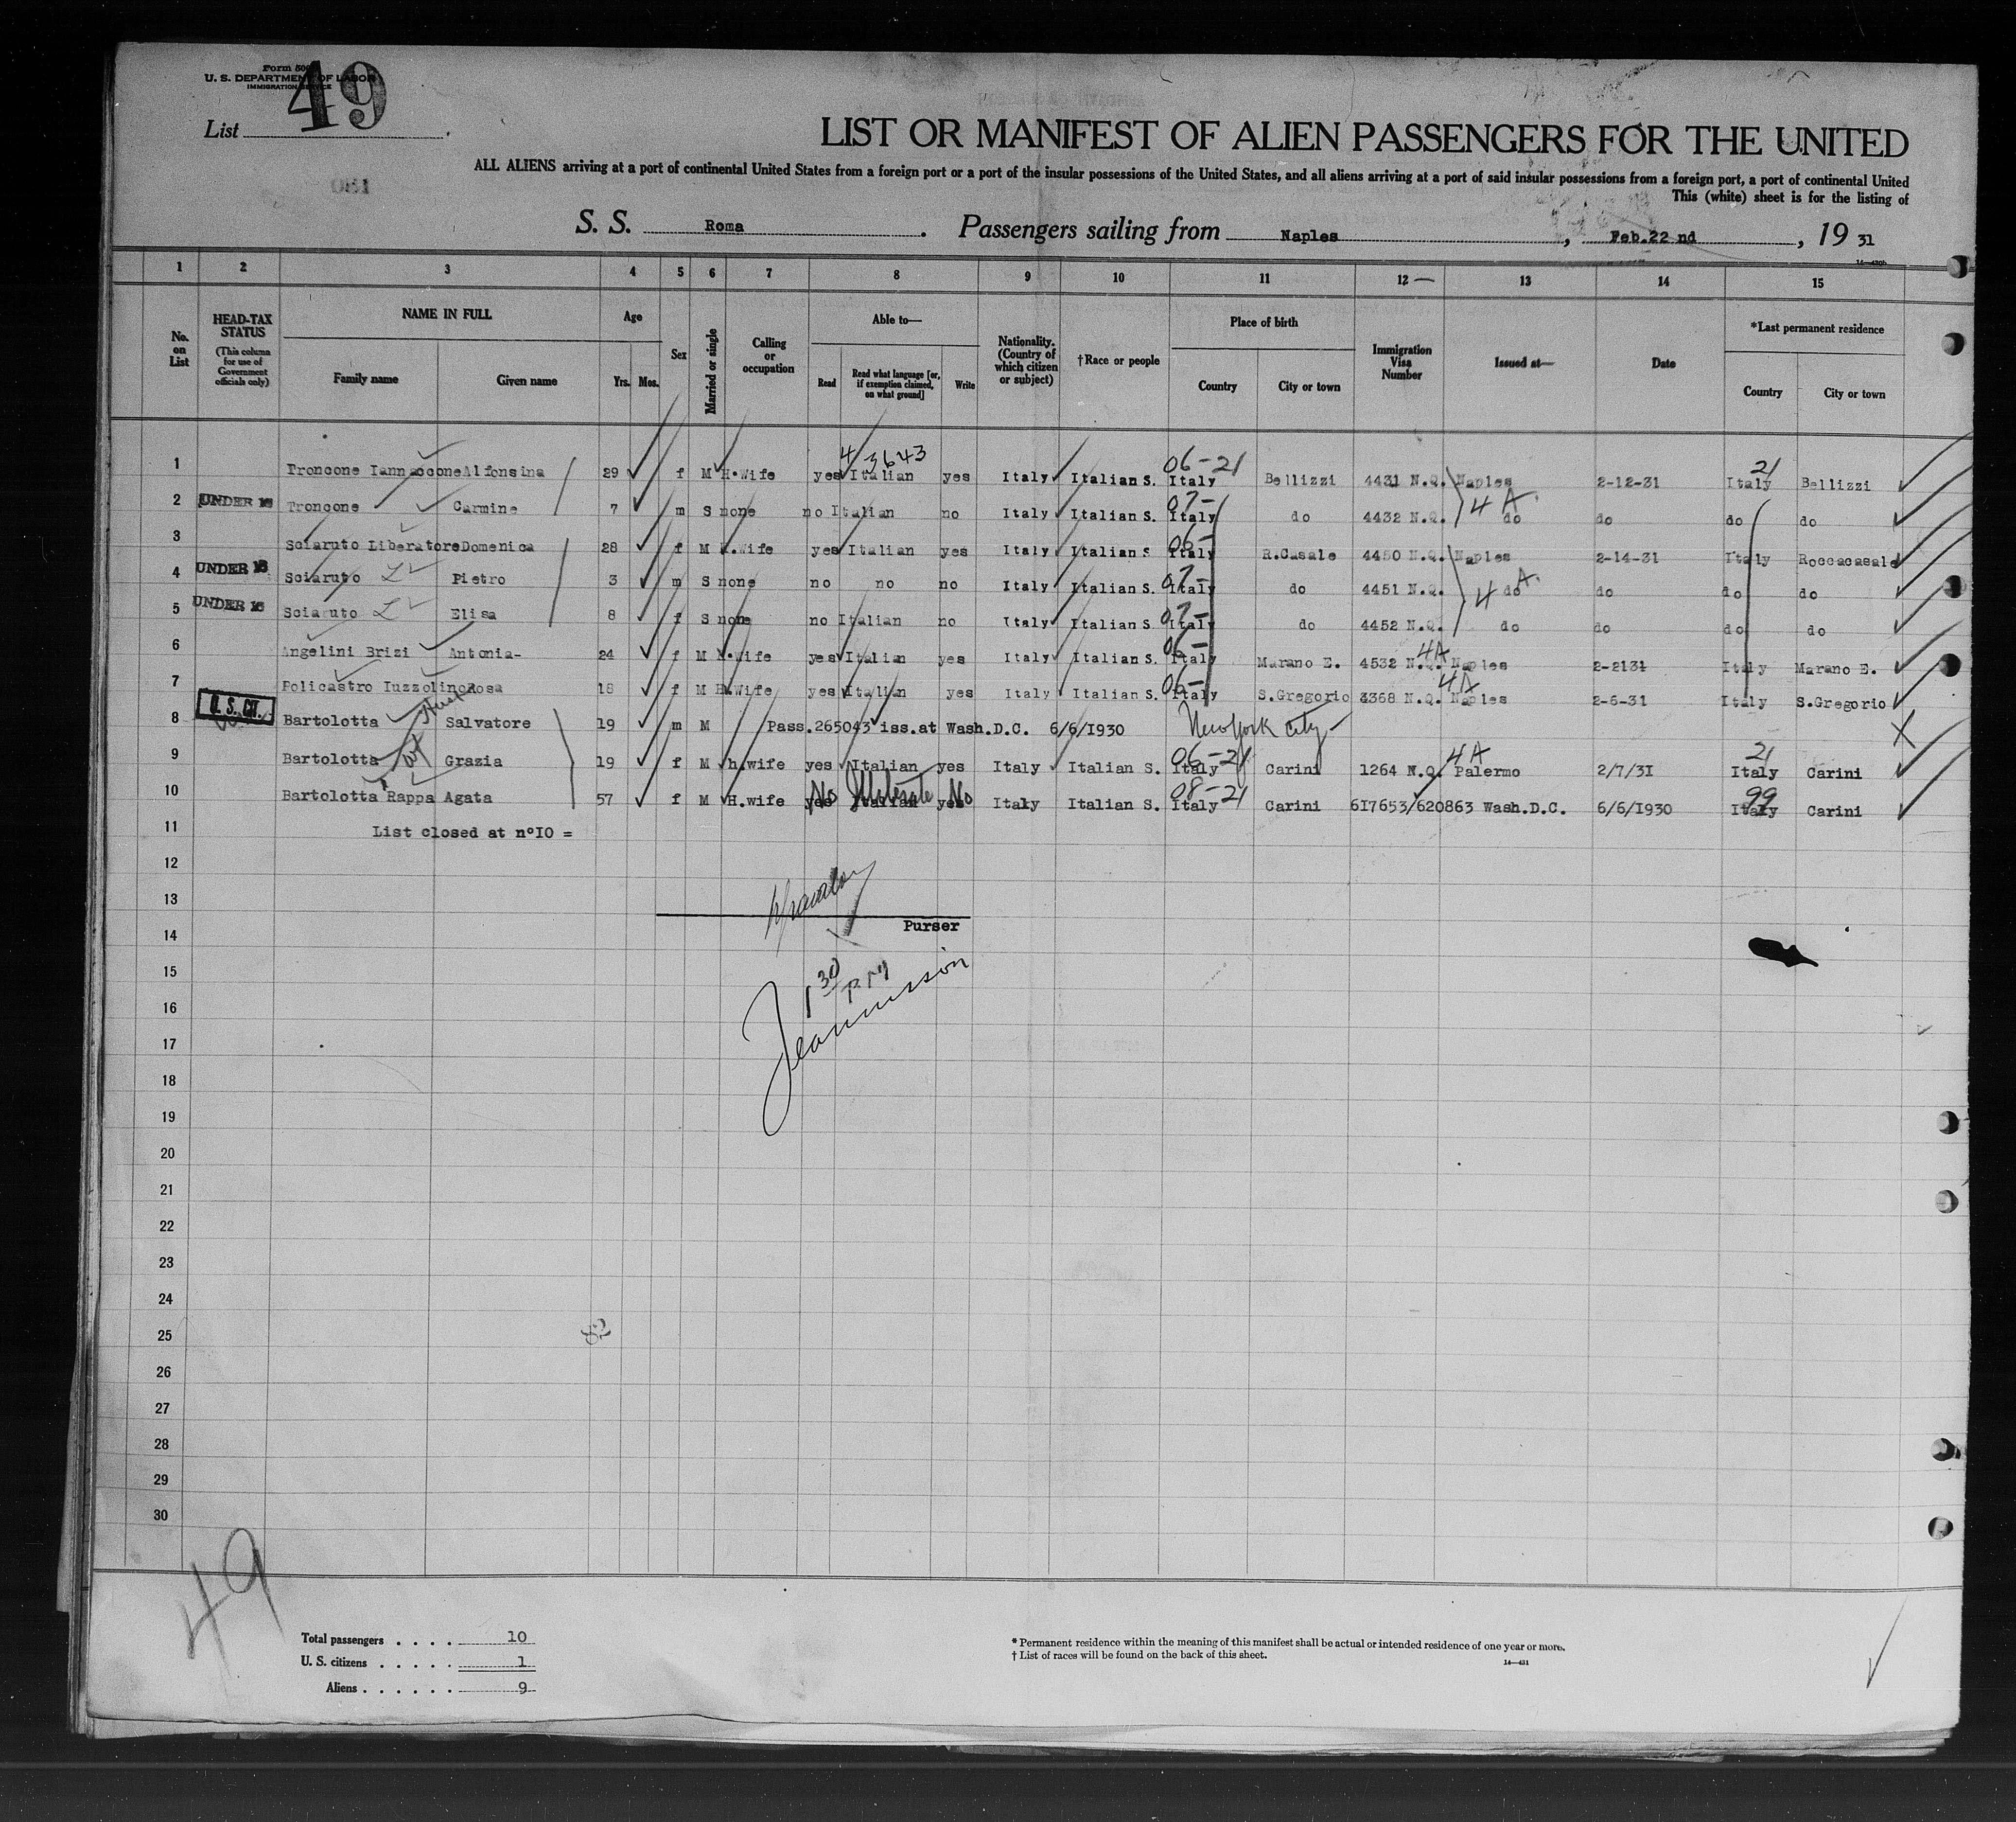 Form 500
U. S. DEPARTMENT OF LABOR
IMMIGRATION SERVICE
49
List
LIST OR MANIFEST OF ALIEN PASSENGERS FOR THE UNITED
ALL ALIENS arriving at a port of continental United States from a foreign port or a port of the insular possessions of the United States, and all aliens arriving at a port of said insular possessions from a foreign port, a port of continental United
This (white) sheet is for the listing of
S. S. Roma. Passengers sailing from Naples, Feb.22 nd, 19 31
1 2 3 4 5 6 7 8 9 10 11 12 13 14 15
No. on List
HEAD-TAX STATUS (This column for use of Government officials only)
NAME IN FULL Family name Given name
Age Yrs. Mos.
Sex
Married or single
Calling or occupation
Able to— Read Read what language [or, if exemption claimed, on what ground] Write
Nationality. (Country of which citizen or subject)
†Race or people
Place of birth Country City or town
Immigration Visa Number
Issued at—
Date
*Last permanent residence Country City or town
4 3643 06-21 21
1 Troncone Iannaccone Alfonsina 29 f M H.Wife yes Italian yes Italy Italian S. Italy Bellizzi 4431 N.Q. Naples 2-12-31 Italy Bellizzi
07- 4 A.
2 UNDER 16 Troncone Carmine 7 m S none no Italian no Italy Italian S. Italy do 4432 N.Q. do do do do
06-
3 Sciaruto Liberatore Domenica 28 f M H.Wife yes Italian yes Italy Italian S Italy R.Casale 4450 N.Q. Naples 2-14-31 Italy Roccacasale
07- 4 A.
4 UNDER 16 Sciaruto L Pietro 3 m S none no no no Italy Italian S. Italy do 4451 N.Q. do do do do
07-
5 UNDER 16 Sciaruto L Elisa 8 f S none no Italian no Italy Italian S. Italy do 4452 N.Q. do do do do
06- 4A
6 Angelini Brizi Antonia- 24 f M H.Wife yes Italian yes Italy Italian S. Italy Marano E. 4532 N.Q. Naples 2-2131 Italy Marano E.
06- 4A
7 Policastro Iuzzolino Rosa 18 f M H.Wife yes Italian yes Italy Italian S. Italy S.Gregorio 3368 N.Q. Naples 2-6-31 Italy S.Gregorio
8 U. S. CIT. Bartolotta Salvatore 19 m M Pass.265043 iss.at Wash.D.C. 6/6/1930 New York City X
06-21 4A 21
9 Bartolotta Grazia 19 f M h.wife yes Italian yes Italy Italian S. Italy Carini 1264 N.Q. Palermo 2/7/31 Italy Carini
No No 08-21 99
10 Bartolotta Rappa Agata 57 f M H.wife yes Italian yes Italy Italian S. Italy Carini 617653/620863 Wash.D.C. 6/6/1930 Italy Carini
11 List closed at n°10 =
12
13
Purser
14
15
1 30 P.M
16
17
18
19
20
21
22
23
24
25
82
26
27
28
29
30
49
Total passengers . . . . 10
U. S. citizens . . . . . 1
Aliens . . . . . . 9
* Permanent residence within the meaning of this manifest shall be actual or intended residence of one year or more.
† List of races will be found on the back of this sheet.
14—431